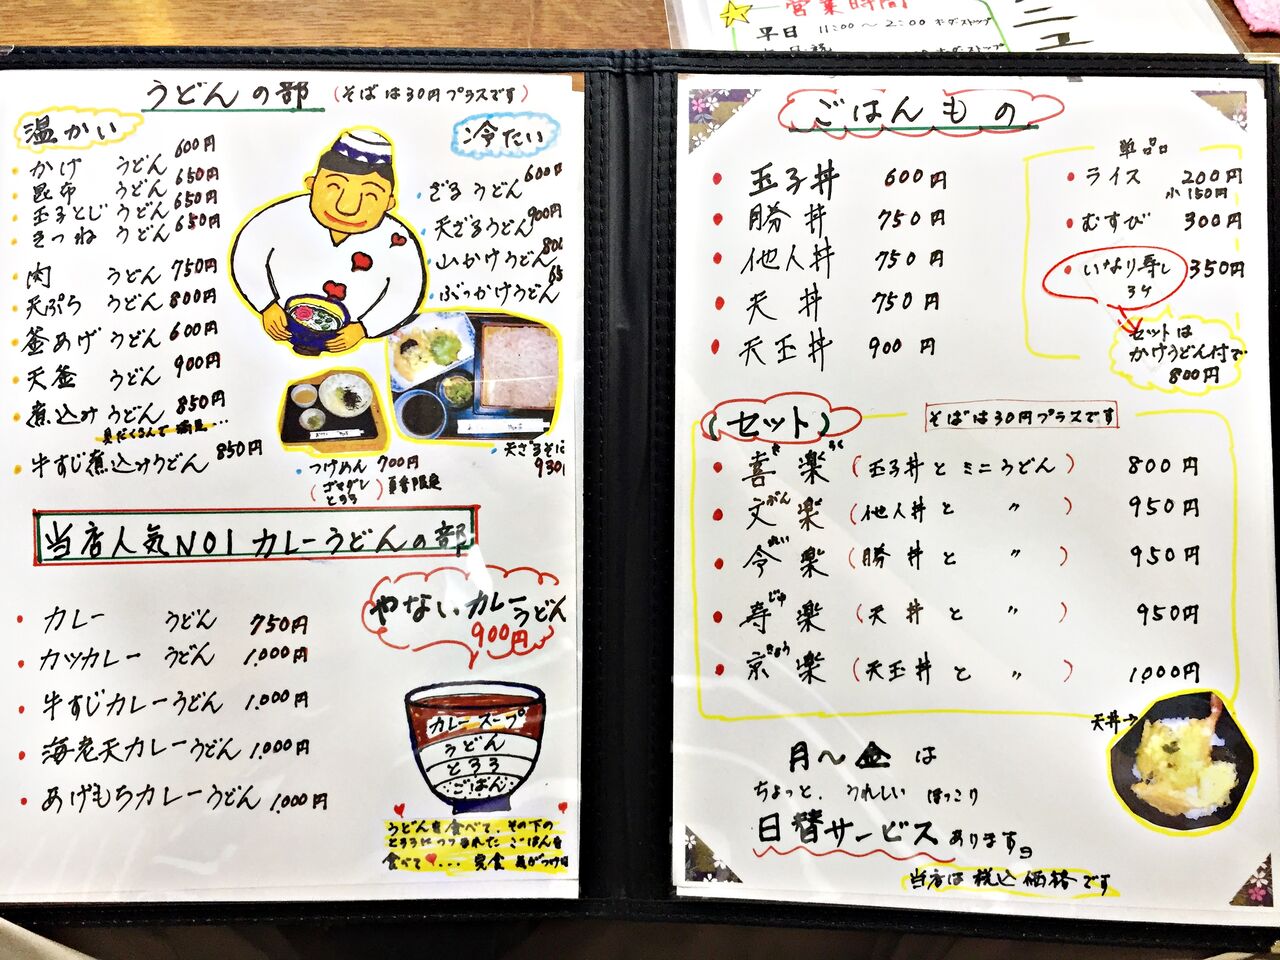 営業時間
平日 11:00〜2:00 オーダストップ
うどんの部 (そばは30円プラスです)
温かい
かけ うどん 600円
昆布 うどん 650円
玉子とじ うどん 650円
きつね うどん 650円
肉 うどん 750円
天ぷら うどん 800円
釜あげ うどん 600円
天釜 うどん 900円
煮込み うどん 850円
具だくさんで 満足...
牛すじ煮込みうどん 850円
冷たい
ざる うどん 600円
天ざるうどん 900円
山かけうどん 800
ぶっかけうどん 65
天ざるそば
930
つけめん 700円
(ゴマダレ とろろ) 夏季限定
当店人気NO1 カレーうどんの部
カレー うどん 750円
カツカレー うどん 1,000円
牛すじカレーうどん 1,000円
海老天カレーうどん 1,000円
あげもちカレーうどん 1,000円
やないカレーうどん
900円
カレースープ
うどん
とろろ
ごはん
うどんを食べて、その下の
とろろにつつまれた ごはんを
食べて♥... 完食 気がつけば
ごはんもの
玉子丼 600円
勝丼 750円
他人丼 750円
天丼 750円
天玉丼 900円
単品
ライス 200円
小150円
むすび 300円
いなり寿し 350円
3ケ
セットは
かけうどん付で
800円
(セット)
そばは30円プラスです
喜楽 (玉子丼と ミニうどん) 800円
文楽 (他人丼と 〃) 950円
令楽 (勝丼と 〃) 950円
寿楽 (天丼と 〃) 950円
京楽 (天玉丼と 〃) 1,000円
天丼→
月〜金は
ちょっと、うれしい ほっこり
日替サービス あります。
当店は 税込価格です